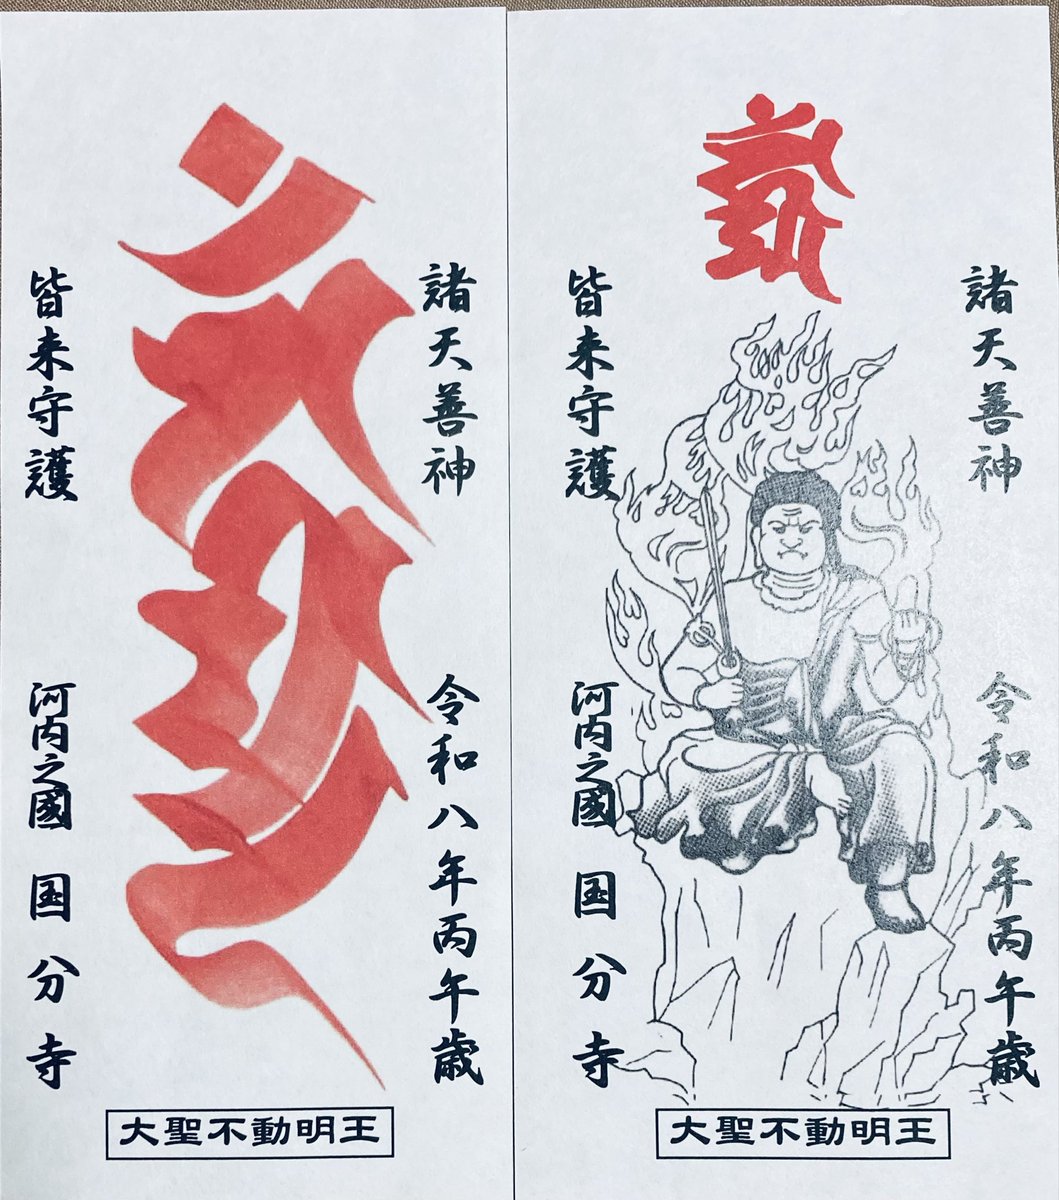 諸天善神
皆来守護
令和八年丙午歳
河内之國 国分寺
大聖不動明王
諸天善神
皆来守護
令和八年丙午歳
河内之國 国分寺
大聖不動明王